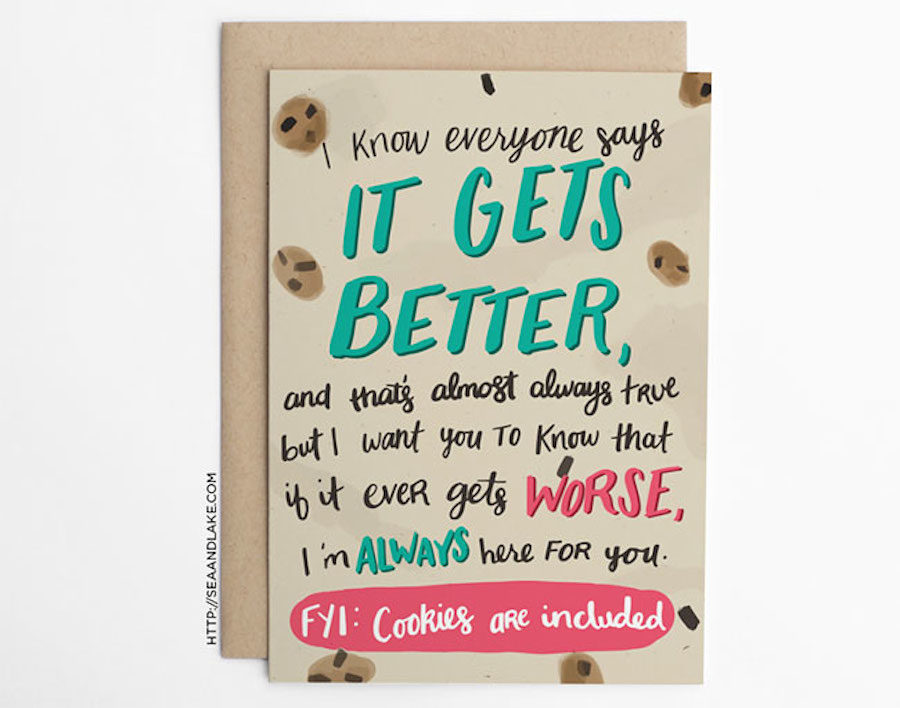 I know everyone says
IT GETS
BETTER,
and that's almost always TRUE
but I want you TO Know that
if it eveR gets WORSE,
I'm ALWAYS here FOR you.
FYI: Cookies are included
HTTP://SEAANDLAKE.COM